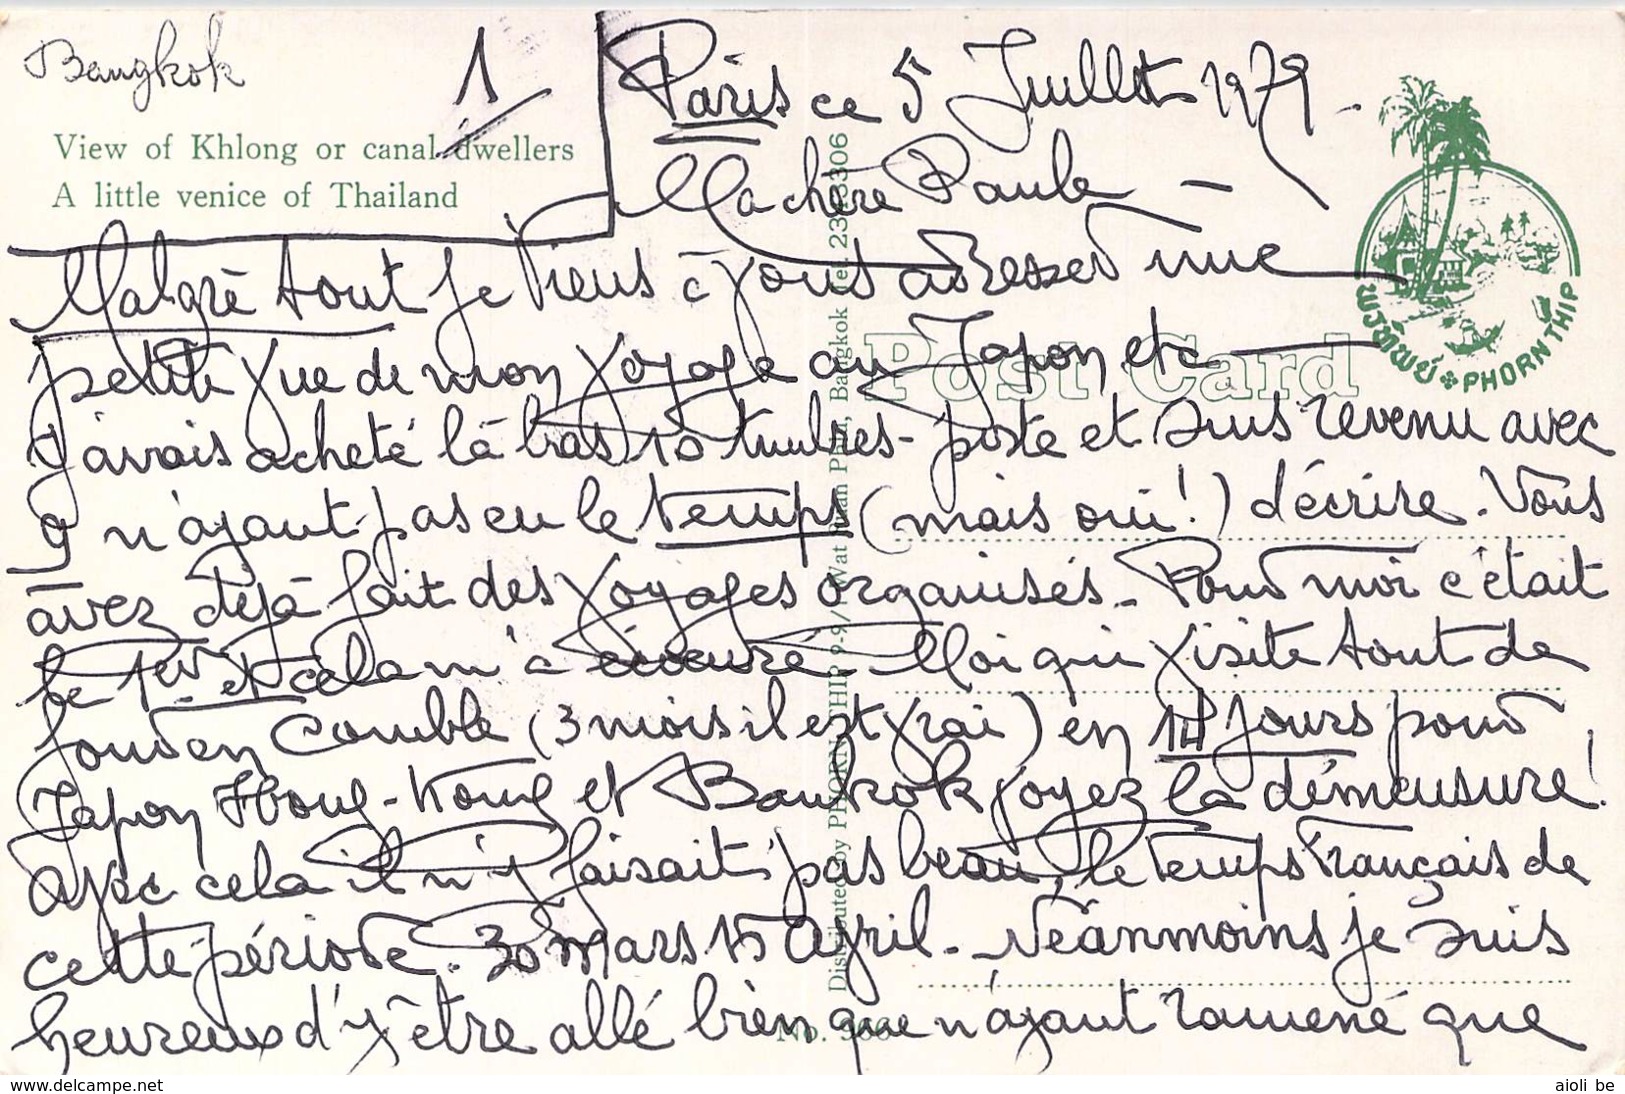 Bangkok
1
View of Khlong or canal dwellers
A little venice of Thailand
Paris ce 5 Juillet 1979.
Ma chère Paule -
Malgré tout je tiens à vous adresser une
petite vue de mon voyage au Japon etc
j'avais acheté là bas 10 timbres-poste et suis revenu avec
9 n'ayant pas eu le temps (mais oui!) d'écrire. Vous
avez déjà fait des voyages organisés. Pour moi c'était
le 1er et cela m'a écœuré. Moi qui visite tout de
fond en comble (3 mois il est vrai) en 14 jours pour
Japon Hong-Kong et Bankok voyez la démeusure!
Avec cela il n'y faisait pas beau, le temps Français de
cette période. 30 mars 15 Avril. Néanmoins je suis
heureux d'y être allé bien que n'ayant ramené que
Post Card
พรทิพย์ PHORN THIP
Distributed by PHORN THIP 9-9/1 Wat Bangkok Tel. 2313306
No. 966
www.delcampe.net
aioli be